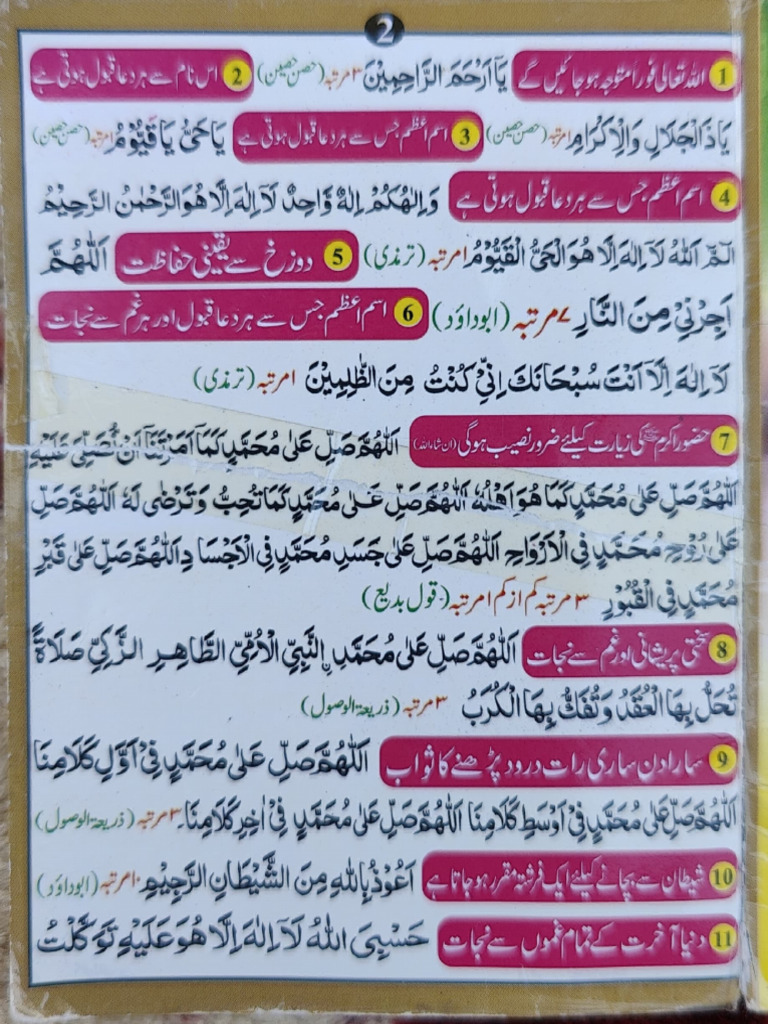 2
1 اللہ تعالیٰ فوراً متوجہ ہو جائیں گے یَآ اَرْحَمَ الرَّاحِمِیْنَ ۳ مرتبہ (حصن حصین) 2 اس نام سے ہر دعا قبول ہوتی ہے
یَاذَ الْجَلَالِ وَالْاِکْرَامِ ۱ مرتبہ (حصن حصین) 3 اسم اعظم جس سے ہر دعا قبول ہوتی ہے یَا حَیُّ یَا قَیُّوْمُ ۱ مرتبہ (حصن حصین)
4 اسم اعظم جس سے ہر دعا قبول ہوتی ہے وَاِلٰهُکُمْ اِلٰهٌ وَّاحِدٌ لَآ اِلٰهَ اِلَّا هُوَ الرَّحْمٰنُ الرَّحِیْمُ
الٓمّٓ اَللّٰهُ لَآ اِلٰهَ اِلَّا هُوَ الْحَیُّ الْقَیُّوْمُ ۱ مرتبہ (ترمذی) 5 دوزخ سے یقینی حفاظت اَللّٰهُمَّ
اَجِرْنِیْ مِنَ النَّارِ ۷ مرتبہ (ابوداؤد) 6 اسم اعظم جس سے ہر دعا قبول اور ہر غم سے نجات
لَآ اِلٰهَ اِلَّآ اَنْتَ سُبْحَانَكَ اِنِّیْ کُنْتُ مِنَ الظّٰلِمِیْنَ ۱ مرتبہ (ترمذی)
7 حضور اکرم ﷺ کی زیارت کیلئے ضرور نصیب ہوگی (ان شاءاللہ) اَللّٰهُمَّ صَلِّ عَلٰی مُحَمَّدٍ کَمَآ اَمَرْتَنَآ اَنْ نُّصَلِّیَ عَلَیْهِ
اَللّٰهُمَّ صَلِّ عَلٰی مُحَمَّدٍ کَمَا هُوَ اَهْلُهٗ اَللّٰهُمَّ صَلِّ عَلٰی مُحَمَّدٍ کَمَا تُحِبُّ وَتَرْضٰی لَهٗ اَللّٰهُمَّ صَلِّ
عَلٰی رُوْحِ مُحَمَّدٍ فِی الْاَرْوَاحِ اَللّٰهُمَّ صَلِّ عَلٰی جَسَدِ مُحَمَّدٍ فِی الْاَجْسَادِ اَللّٰهُمَّ صَلِّ عَلٰی قَبْرِ
مُحَمَّدٍ فِی الْقُبُوْرِ ۳ مرتبہ کم از کم ۱ مرتبہ (قول بدیع)
8 سختی پریشانی اور غم سے نجات اَللّٰهُمَّ صَلِّ عَلٰی مُحَمَّدِ نِ النَّبِیِّ الْاُمِّیِّ الطَّاهِرِ الزَّکِیِّ صَلَاةً
تُحَلُّ بِهَا الْعُقَدُ وَتُفَكُّ بِهَا الْکُرَبُ ۳ مرتبہ (ذریعۃ الوصول)
9 سارا دن ساری رات درود پڑھنے کا ثواب اَللّٰهُمَّ صَلِّ عَلٰی مُحَمَّدٍ فِیْ اَوَّلِ کَلَامِنَا
اَللّٰهُمَّ صَلِّ عَلٰی مُحَمَّدٍ فِیْ اَوْسَطِ کَلَامِنَا اَللّٰهُمَّ صَلِّ عَلٰی مُحَمَّدٍ فِیْ اٰخِرِ کَلَامِنَا۔ ۳ مرتبہ (ذریعۃ الوصول)
10 شیطان سے بچانے کیلئے ایک فرشتہ مقرر ہو جاتا ہے اَعُوْذُ بِاللّٰهِ مِنَ الشَّیْطَانِ الرَّجِیْمِ ۱۰ مرتبہ (ابوداؤد)
11 دنیا آخرت کے تمام غموں سے نجات حَسْبِیَ اللّٰهُ لَآ اِلٰهَ اِلَّا هُوَ عَلَیْهِ تَوَکَّلْتُ